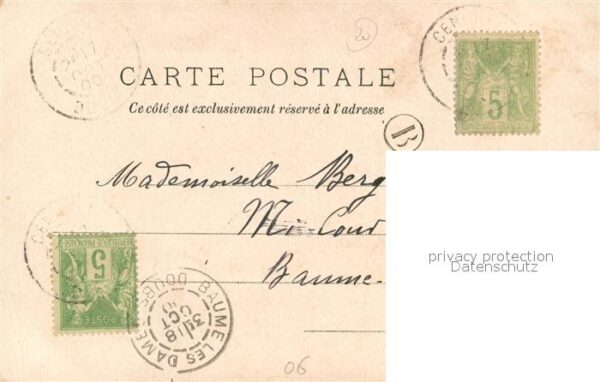 CARTE POSTALE
Ce côté est exclusivement réservé à l'adresse
5
B
Mademoiselle Berg
Mi-Cour
Baume-
privacy protection
Datenschutz
5
POSTE
BAUME LES DAMES
DOUBS
3E
18
OCT
06